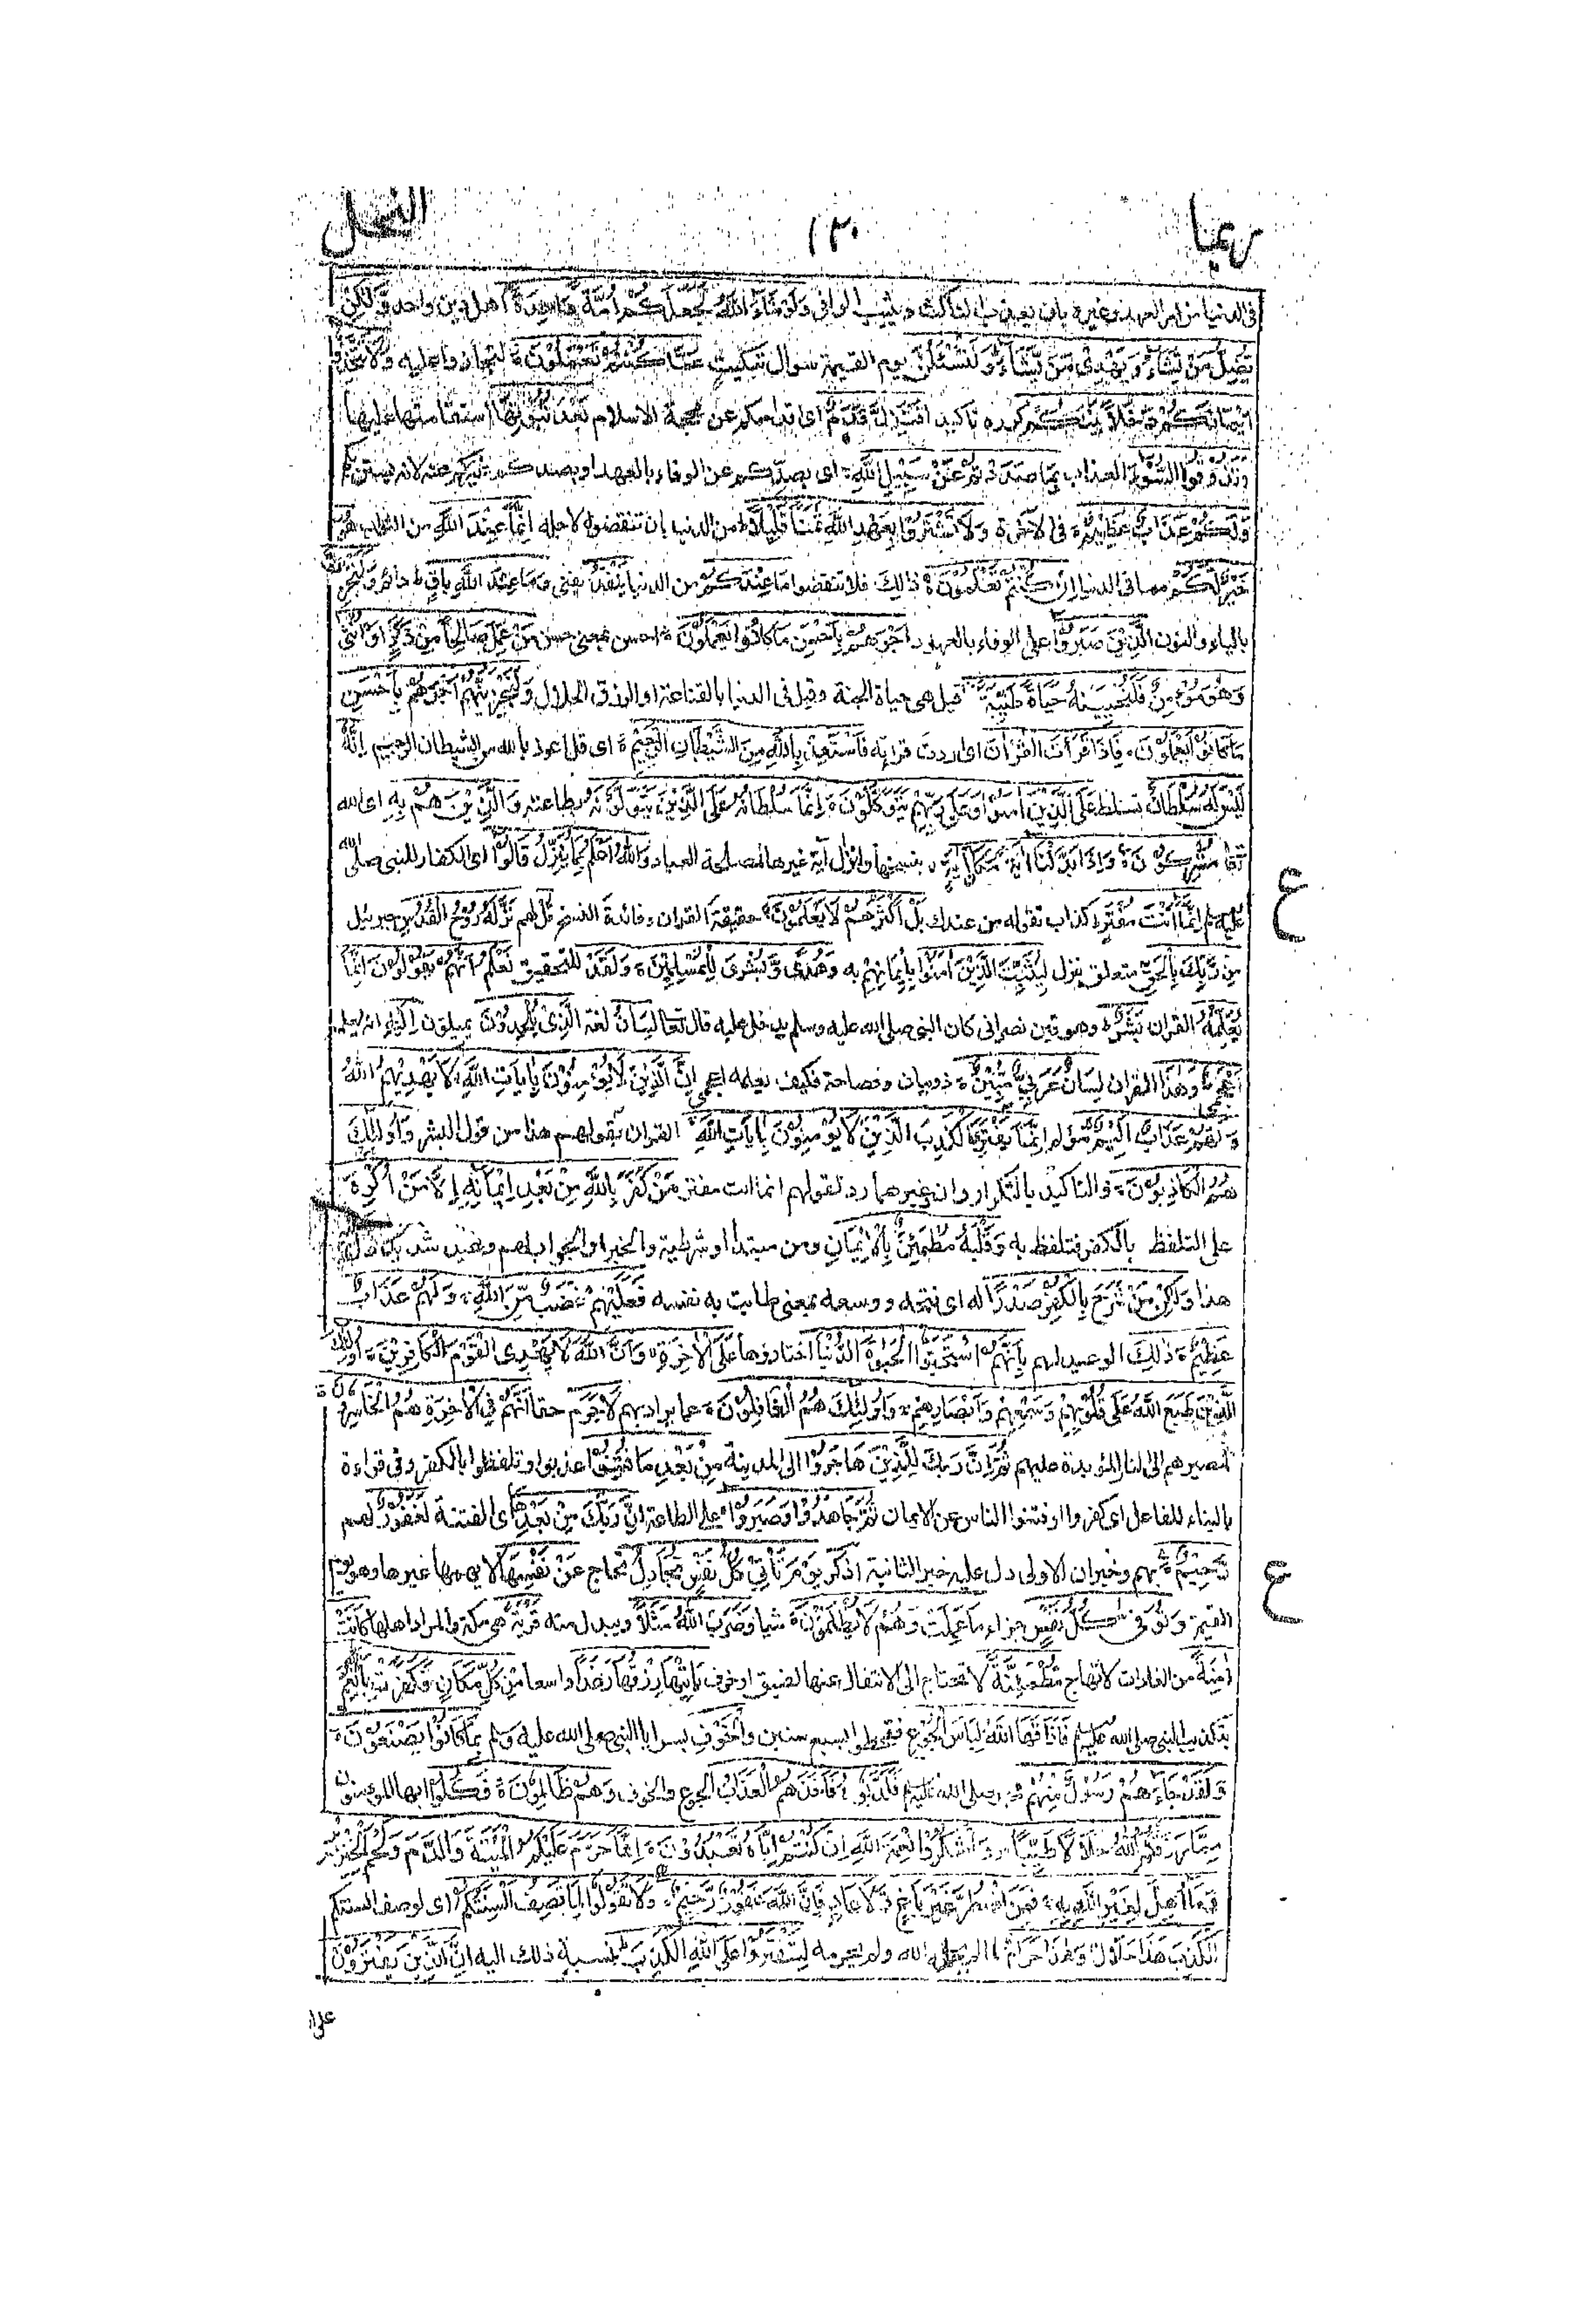 ربما ١٣٠ النحل
فى الدنيا من امر العهد وغيره بان يعذب الناكث ويثيب الوافى وَلَوْ شَاءَ اللّٰهُ لَجَعَلَكُمْ اُمَّةً وَّاحِدَةً اهل دين واحد وَّلٰكِنْ
يُّضِلُّ مَنْ يَّشَاءُ وَيَهْدِىْ مَنْ يَّشَاءُ وَلَتُسْئَلُنَّ يوم القيمة سوال تبكيت عَمَّا كُنْتُمْ تَعْمَلُوْنَ ۃ لتجازوا عليه وَلَا تَتَّخِذُوْا
اَيْمَانَكُمْ دَخَلًا بَيْنَكُمْ كرره تاكيدا فَتَزِلَّ قَدَمٌ اى اقدامكم عن محجة الاسلام بَعْدَ ثُبُوْتِهَا استقامتها عليها
وَتَذُوْقُوا السُّوْءَ العذاب بِمَا صَدَدْتُّمْ عَنْ سَبِيْلِ اللّٰهِ اى بصدكم عن الوفاء بالعهد او بصدكم غيركم عنه لانه يستن بكم
وَلَكُمْ عَذَابٌ عَظِيْمٌ ۃ فى الاخرة وَلَا تَشْتَرُوْا بِعَهْدِ اللّٰهِ ثَمَنًا قَلِيْلًا ط من الدنيا بان تنقضوه لاجله اِنَّمَا عِنْدَ اللّٰهِ من الثواب هُوَ
خَيْرٌ لَّكُمْ مما فى الدنيا اِنْ كُنْتُمْ تَعْلَمُوْنَ ۃ ذالك فلا تنقضوا مَا عِنْدَكُمْ من الدنيا يَنْفَدُ يفنى وَمَا عِنْدَ اللّٰهِ بَاقٍ ط دائم وَلَنَجْزِيَنَّ
بالياء والنون الَّذِيْنَ صَبَرُوْا على الوفاء بالعهود اَجْرَهُمْ بِاَحْسَنِ مَا كَانُوْا يَعْمَلُوْنَ ۃ احسن بمعنى حسن مَنْ عَمِلَ صَالِحًا مِّنْ ذَكَرٍ اَوْ اُنْثٰى
وَهُوَ مُؤْمِنٌ فَلَنُحْيِيَنَّهُ حَيَاةً طَيِّبَةً قيل هى حياة الجنة وقيل فى الدنيا بالقناعة او الرزق الحلال وَلَنَجْزِيَنَّهُمْ اَجْرَهُمْ بِاَحْسَنِ
مَا كَانُوْا يَعْمَلُوْنَ ۃ فَاِذَا قَرَأْتَ الْقُرْاٰنَ اى اردت قراءته فَاسْتَعِذْ بِاللّٰهِ مِنَ الشَّيْطَانِ الرَّجِيْمِ ۃ اى قل اعوذ بالله من الشيطان الرجيم اِنَّهُ
لَيْسَ لَهُ سُلْطَانٌ تسلط عَلَى الَّذِيْنَ اٰمَنُوْا وَعَلٰى رَبِّهِمْ يَتَوَكَّلُوْنَ ۃ اِنَّمَا سُلْطَانُهُ عَلَى الَّذِيْنَ يَتَوَلَّوْنَهُ بطاعته وَالَّذِيْنَ هُمْ بِهِ اى الله
تعالى مُشْرِكُوْنَ ۃ وَاِذَا بَدَّلْنَا اٰيَةً مَّكَانَ اٰيَةٍ بنسخها وانزل آية غيرها لمصلحة العباد وَاللّٰهُ اَعْلَمُ بِمَا يُنَزِّلُ قَالُوْا اى الكفار للنبى صلى الله
عليه اِنَّمَا اَنْتَ مُفْتَرٍ كذاب تقوله من عندك بَلْ اَكْثَرُهُمْ لَا يَعْلَمُوْنَ حقيقة القران وفائدة النسخ قُلْ لهم نَزَّلَهُ رُوْحُ الْقُدُسِ جبرئيل
مِنْ رَّبِّكَ بِالْحَقِّ متعلق بنزل لِيُثَبِّتَ الَّذِيْنَ اٰمَنُوْا بايمانهم به وَهُدًى وَّبُشْرٰى لِلْمُسْلِمِيْنَ ۃ وَلَقَدْ للتحقيق نَعْلَمُ اَنَّهُمْ يَقُوْلُوْنَ اِنَّمَا
يُعَلِّمُهُ القران بَشَرٌ وهو قين نصرانى كان النبى صلى الله عليه وسلم يدخل عليه قال تعالى لِسَانُ لغة الَّذِىْ يُلْحِدُوْنَ يميلون اِلَيْهِ انه يعلمه
اَعْجَمِىٌّ وَّهٰذَا القران لِسَانٌ عَرَبِىٌّ مُّبِيْنٌ ۃ ذو بيان وفصاحة فكيف يعلمه اعجمى اِنَّ الَّذِيْنَ لَا يُؤْمِنُوْنَ بِاٰيَاتِ اللّٰهِ لَا يَهْدِيْهِمُ اللّٰهُ
وَلَهُمْ عَذَابٌ اَلِيْمٌ مؤلم اِنَّمَا يَفْتَرِى الْكَذِبَ الَّذِيْنَ لَا يُؤْمِنُوْنَ بِاٰيَاتِ اللّٰهِ القران بقولهم هذا من قول البشر وَاُولٰئِكَ
هُمُ الْكَاذِبُوْنَ ۃ والتاكيد بالتكرار وان وغيرهما رد لقولهم انما انت مفتر مَنْ كَفَرَ بِاللّٰهِ مِنْ بَعْدِ اِيْمَانِهِ اِلَّا مَنْ اُكْرِهَ
على التلفظ بالكفر فتلفظ به وَقَلْبُهُ مُطْمَئِنٌّ بِالْاِيْمَانِ ومن مبتدأ او شرطية والخبر او الجواب لهم وعيد شديد دل عليه
هذا وَلٰكِنْ مَّنْ شَرَحَ بِالْكُفْرِ صَدْرًا له اى فتحه ووسعه بمعنى طابت به نفسه فَعَلَيْهِمْ غَضَبٌ مِّنَ اللّٰهِ وَلَهُمْ عَذَابٌ
عَظِيْمٌ ۃ ذٰلِكَ الوعيد لهم بِاَنَّهُمُ اسْتَحَبُّوا الْحَيٰوةَ الدُّنْيَا اختاروها عَلَى الْاٰخِرَةِ وَاَنَّ اللّٰهَ لَا يَهْدِى الْقَوْمَ الْكَافِرِيْنَ ۃ اُولٰئِكَ
الَّذِيْنَ طَبَعَ اللّٰهُ عَلٰى قُلُوْبِهِمْ وَسَمْعِهِمْ وَاَبْصَارِهِمْ وَاُولٰئِكَ هُمُ الْغَافِلُوْنَ ۃ عما يراد بهم لَا جَرَمَ حقا اَنَّهُمْ فِى الْاٰخِرَةِ هُمُ الْخَاسِرُوْنَ ۃ
لمصيرهم الى النار المؤبدة عليهم ثُمَّ اِنَّ رَبَّكَ لِلَّذِيْنَ هَاجَرُوْا الى المدينة مِنْ بَعْدِ مَا فُتِنُوْا عذبوا وتلفظوا بالكفر وفى قراءة
بالبناء للفاعل اى كفروا او فتنوا الناس عن الايمان ثُمَّ جَاهَدُوْا وَصَبَرُوْا على الطاعة اِنَّ رَبَّكَ مِنْ بَعْدِهَا اى الفتنة لَغَفُوْرٌ لهم
رَّحِيْمٌ بهم وخبر ان الاولى دل عليه خبر الثانية اذكر يَوْمَ تَأْتِىْ كُلُّ نَفْسٍ تُجَادِلُ تحاج عَنْ نَّفْسِهَا لا يهمها غيرها وهو يوم
القيمة وَتُوَفّٰى كُلُّ نَفْسٍ جزاء مَا عَمِلَتْ وَهُمْ لَا يُظْلَمُوْنَ ۃ شيا وَضَرَبَ اللّٰهُ مَثَلًا ويبدل منه قَرْيَةً هى مكة والمراد اهلها كَانَتْ
اٰمِنَةً من الغارات لا تهاج مُّطْمَئِنَّةً لا تحتاج الى الانتقال عنها لضيق او خوف يَأْتِيْهَا رِزْقُهَا رَغَدًا واسعا مِّنْ كُلِّ مَكَانٍ فَكَفَرَتْ بِاَنْعُمِ
بتكذيب النبى صلى الله عليه وسلم فَاَذَاقَهَا اللّٰهُ لِبَاسَ الْجُوْعِ فقحطوا سبع سنين وَالْخَوْفِ بسرايا النبى صلى الله عليه وسلم بِمَا كَانُوْا يَصْنَعُوْنَ ۃ
وَلَقَدْ جَاءَهُمْ رَسُوْلٌ مِّنْهُمْ محمد صلى الله عليه وسلم فَكَذَّبُوْهُ فَاَخَذَهُمُ الْعَذَابُ الجوع والخوف وَهُمْ ظَالِمُوْنَ ۃ فَكُلُوْا ايها المؤمنون
مِمَّا رَزَقَكُمُ اللّٰهُ حَلَالًا طَيِّبًا وَّاشْكُرُوْا نِعْمَةَ اللّٰهِ اِنْ كُنْتُمْ اِيَّاهُ تَعْبُدُوْنَ ۃ اِنَّمَا حَرَّمَ عَلَيْكُمُ الْمَيْتَةَ وَالدَّمَ وَلَحْمَ الْخِنْزِيْرِ
وَمَا اُهِلَّ لِغَيْرِ اللّٰهِ بِهِ فَمَنِ اضْطُرَّ غَيْرَ بَاغٍ وَّلَا عَادٍ فَاِنَّ اللّٰهَ غَفُوْرٌ رَّحِيْمٌ وَلَا تَقُوْلُوْا لِمَا تَصِفُ اَلْسِنَتُكُمُ اى لوصف السنتكم
الْكَذِبَ هٰذَا حَلَالٌ وَّهٰذَا حَرَامٌ لما لم يحله الله ولم يحرمه لِتَفْتَرُوْا عَلَى اللّٰهِ الْكَذِبَ بنسبة ذلك اليه اِنَّ الَّذِيْنَ يَفْتَرُوْنَ
ع
ع
على